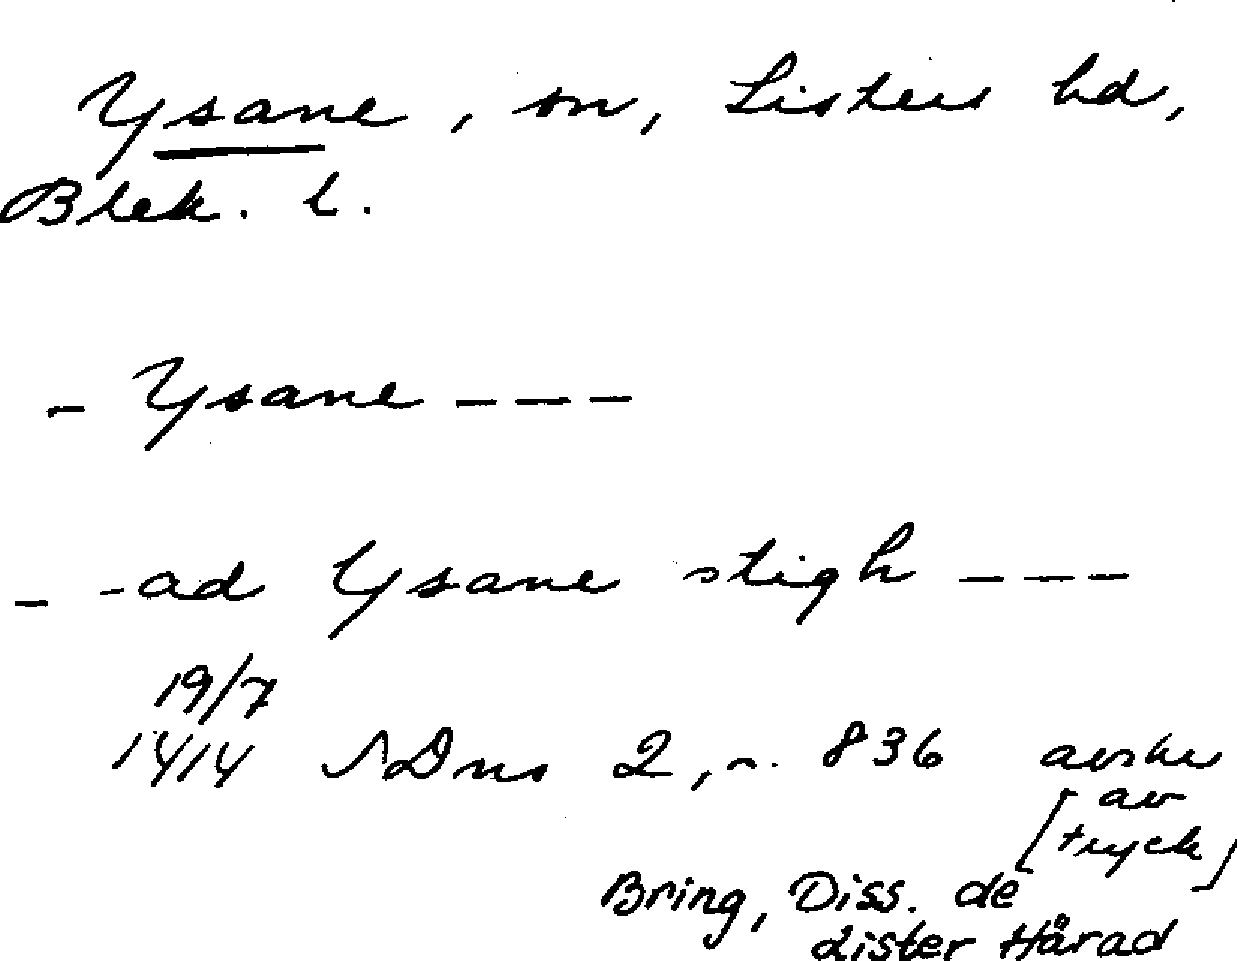 Ysane, sn, Listers hd,
Blek. l.
- Ysane ---
- -ad Ysane stigh ---
19/7
1414 SDns 2, n. 836 avskr
av
[tryck]
Bring, Diss. de
Lister Härad